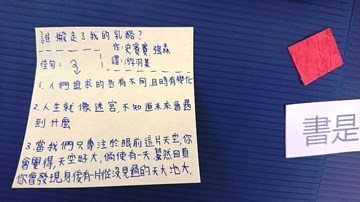 誰搬走了我的乳酪?
作:史賓賽 強森
譯:游羽蓁
佳句:3
1.人們追求的各有不同且時有變化
2.人生就像迷宮,不知道未來會遇
到什麼
3.當我們只專注於眼前這片天空,你
會覺得,天空好大,倘使有一天驀然回首
你會發現身後有一片從沒見過的天大地大.
書是